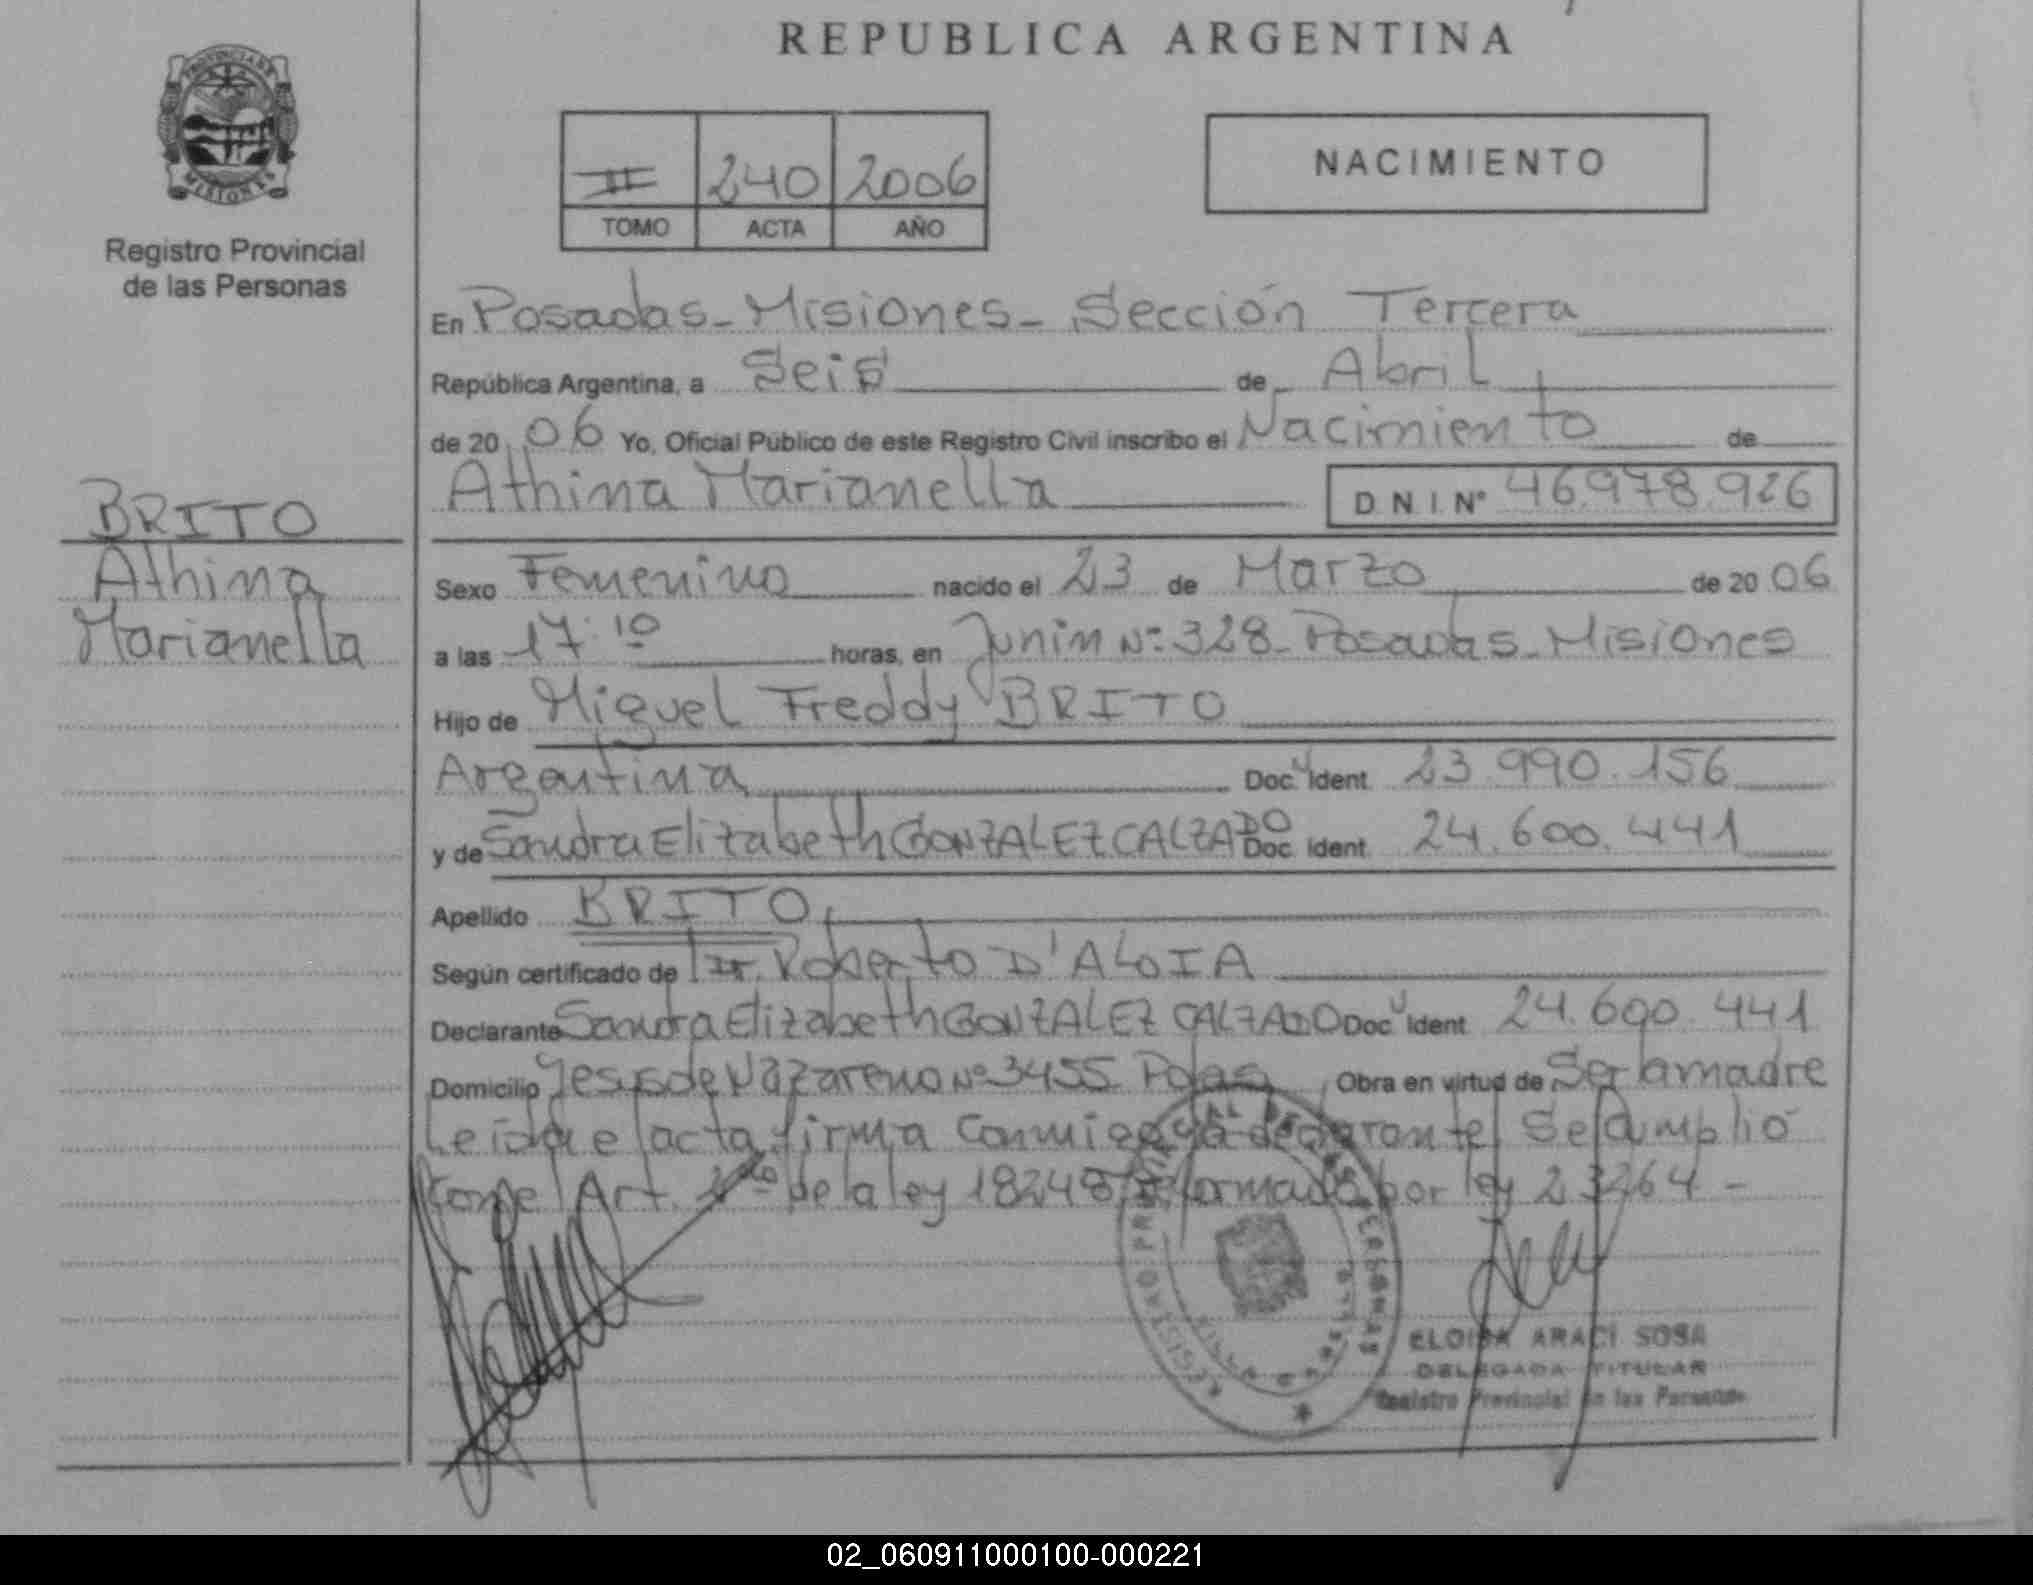 REPUBLICA ARGENTINA
PROVINCIA DE
MISIONES
Registro Provincial
de las Personas
II 240 2006
TOMO ACTA AÑO
NACIMIENTO
En Posadas - Misiones - Sección Tercera
República Argentina, a Seis de Abril
de 20 06 Yo, Oficial Público de este Registro Civil inscribo el Nacimiento de
Athina Marianella D.N.I. N° 46.978.926
BRITO
Athina
Marianella
Sexo Femenino nacido el 23 de Marzo de 20 06
a las 17:10 horas, en Junin N°: 328 - Posadas - Misiones
Hijo de Miguel Freddy BRITO
Argentina Doc. Ident. 23.990.156
y de Sandra Elizabeth GONZALEZ CALZADO Doc. Ident. 24.600.441
Apellido BRITO
Según certificado de Dr. Roberto D'ALOIA
Declarante Sandra Elizabeth GONZALEZ CALZADO Doc. Ident. 24.600.441
Domicilio Jesus de Nazareno N° 3455 Pdas Obra en virtud de Ser la madre
Leida el acta firma conmigo la declarante Se cumplió
con el Art. de la ley 18248 reformado por ley 23264 -
REGISTRO PROVINCIAL DE LAS PERSONAS
ELOISA ARACI SOSA
DELEGADA TITULAR
Registro Provincial de las Personas
02_060911000100-000221